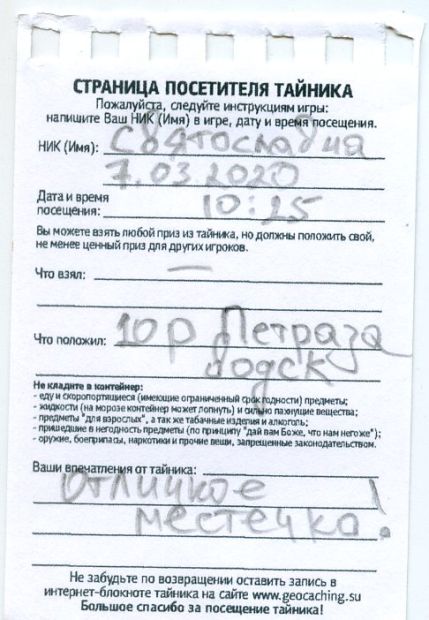 СТРАНИЦА ПОСЕТИТЕЛЯ ТАЙНИКА
Пожалуйста, следуйте инструкциям игры:
напишите Ваш НИК (Имя) в игре, дату и время посещения.
НИК (Имя): Святославна
7.03.2020
Дата и время
посещения: 10:25
Вы можете взять любой приз из тайника, но должны положить свой,
не менее ценный приз для других игроков.
Что взял: —
Что положил: 10р Петраза
водск
Не кладите в контейнер:
- еду и скоропортящиеся (имеющие ограниченный срок годности) предметы;
- жидкости (на морозе контейнер может лопнуть) и сильно пахнущие вещества;
- предметы "для взрослых", а так же табачные изделия и алкоголь;
- пришедшие в негодность предметы (по принципу "дай вам Боже, что нам негоже");
- оружие, боеприпасы, наркотики и прочие вещи, запрещенные законодательством.
Ваши впечатления от тайника:
Отличное
местечко!
Не забудьте по возвращении оставить запись в
интернет-блокноте тайника на сайте www.geocaching.su
Большое спасибо за посещение тайника!